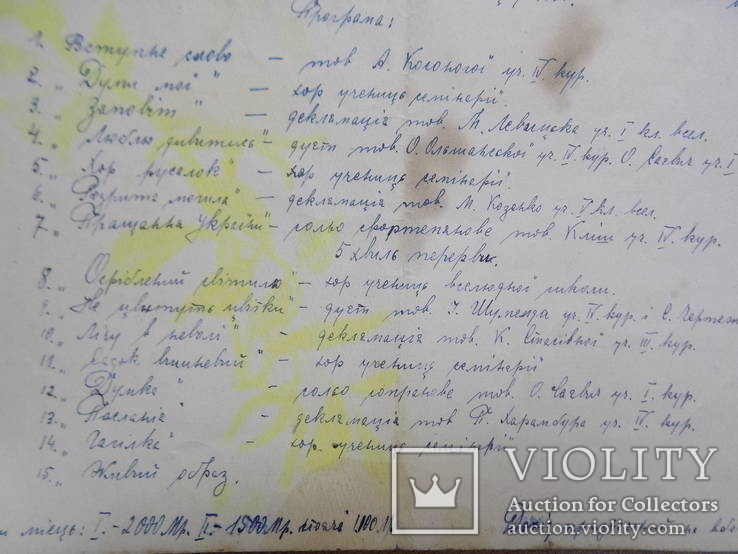 Програма:
1. Вступне слово — тов. А. Косоногої уч. IV. кур.
2. „Думи мої" — хор учениць семінарії.
3. „Заповіт" — деклямація тов. М. Левицька уч. I кл. всел.
4. „Люблю дивитись" - дует тов. О. Ольшанської уч. IV кур. О. Саєвич уч. I
5. „Хор русалок" — хор учениць семінарії.
6. „Розрита могила" — деклямація тов. М. Козенко уч. V кл. всел.
7. „Пращання України" - сольо фортепянове тов. Кліш уч. IV. кур.
5 хвиль перерви.
8. „ світилю" - хор учениць вселюдної школи.
9. „Не цвітуть цвітки" - дует тов. І. уч. IV. кур. і С.
10. „Лічу в неволі" - деклямація тов. К. Спасівної уч. III. кур.
11. „Садок вишневий" - хор учениць семінарії
12. „Думка" - сольо сопранове тов. О. Саєвич уч. I. кур.
13. „Посланіє" - деклямація тов П. Харамбура уч. IV. кур.
14. „Гагілка" - хор. учениць семінарії
15. „Живий образ.
місць: I. - 2000 Мр. II. - 1500 Мр.
VIOLITY
Auction for Collectors
auction.violity.com